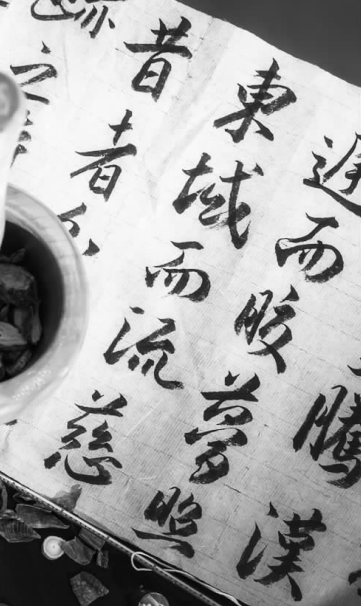 騰漢
庭而皎夢照
東域而流慈
昔者分
跡之